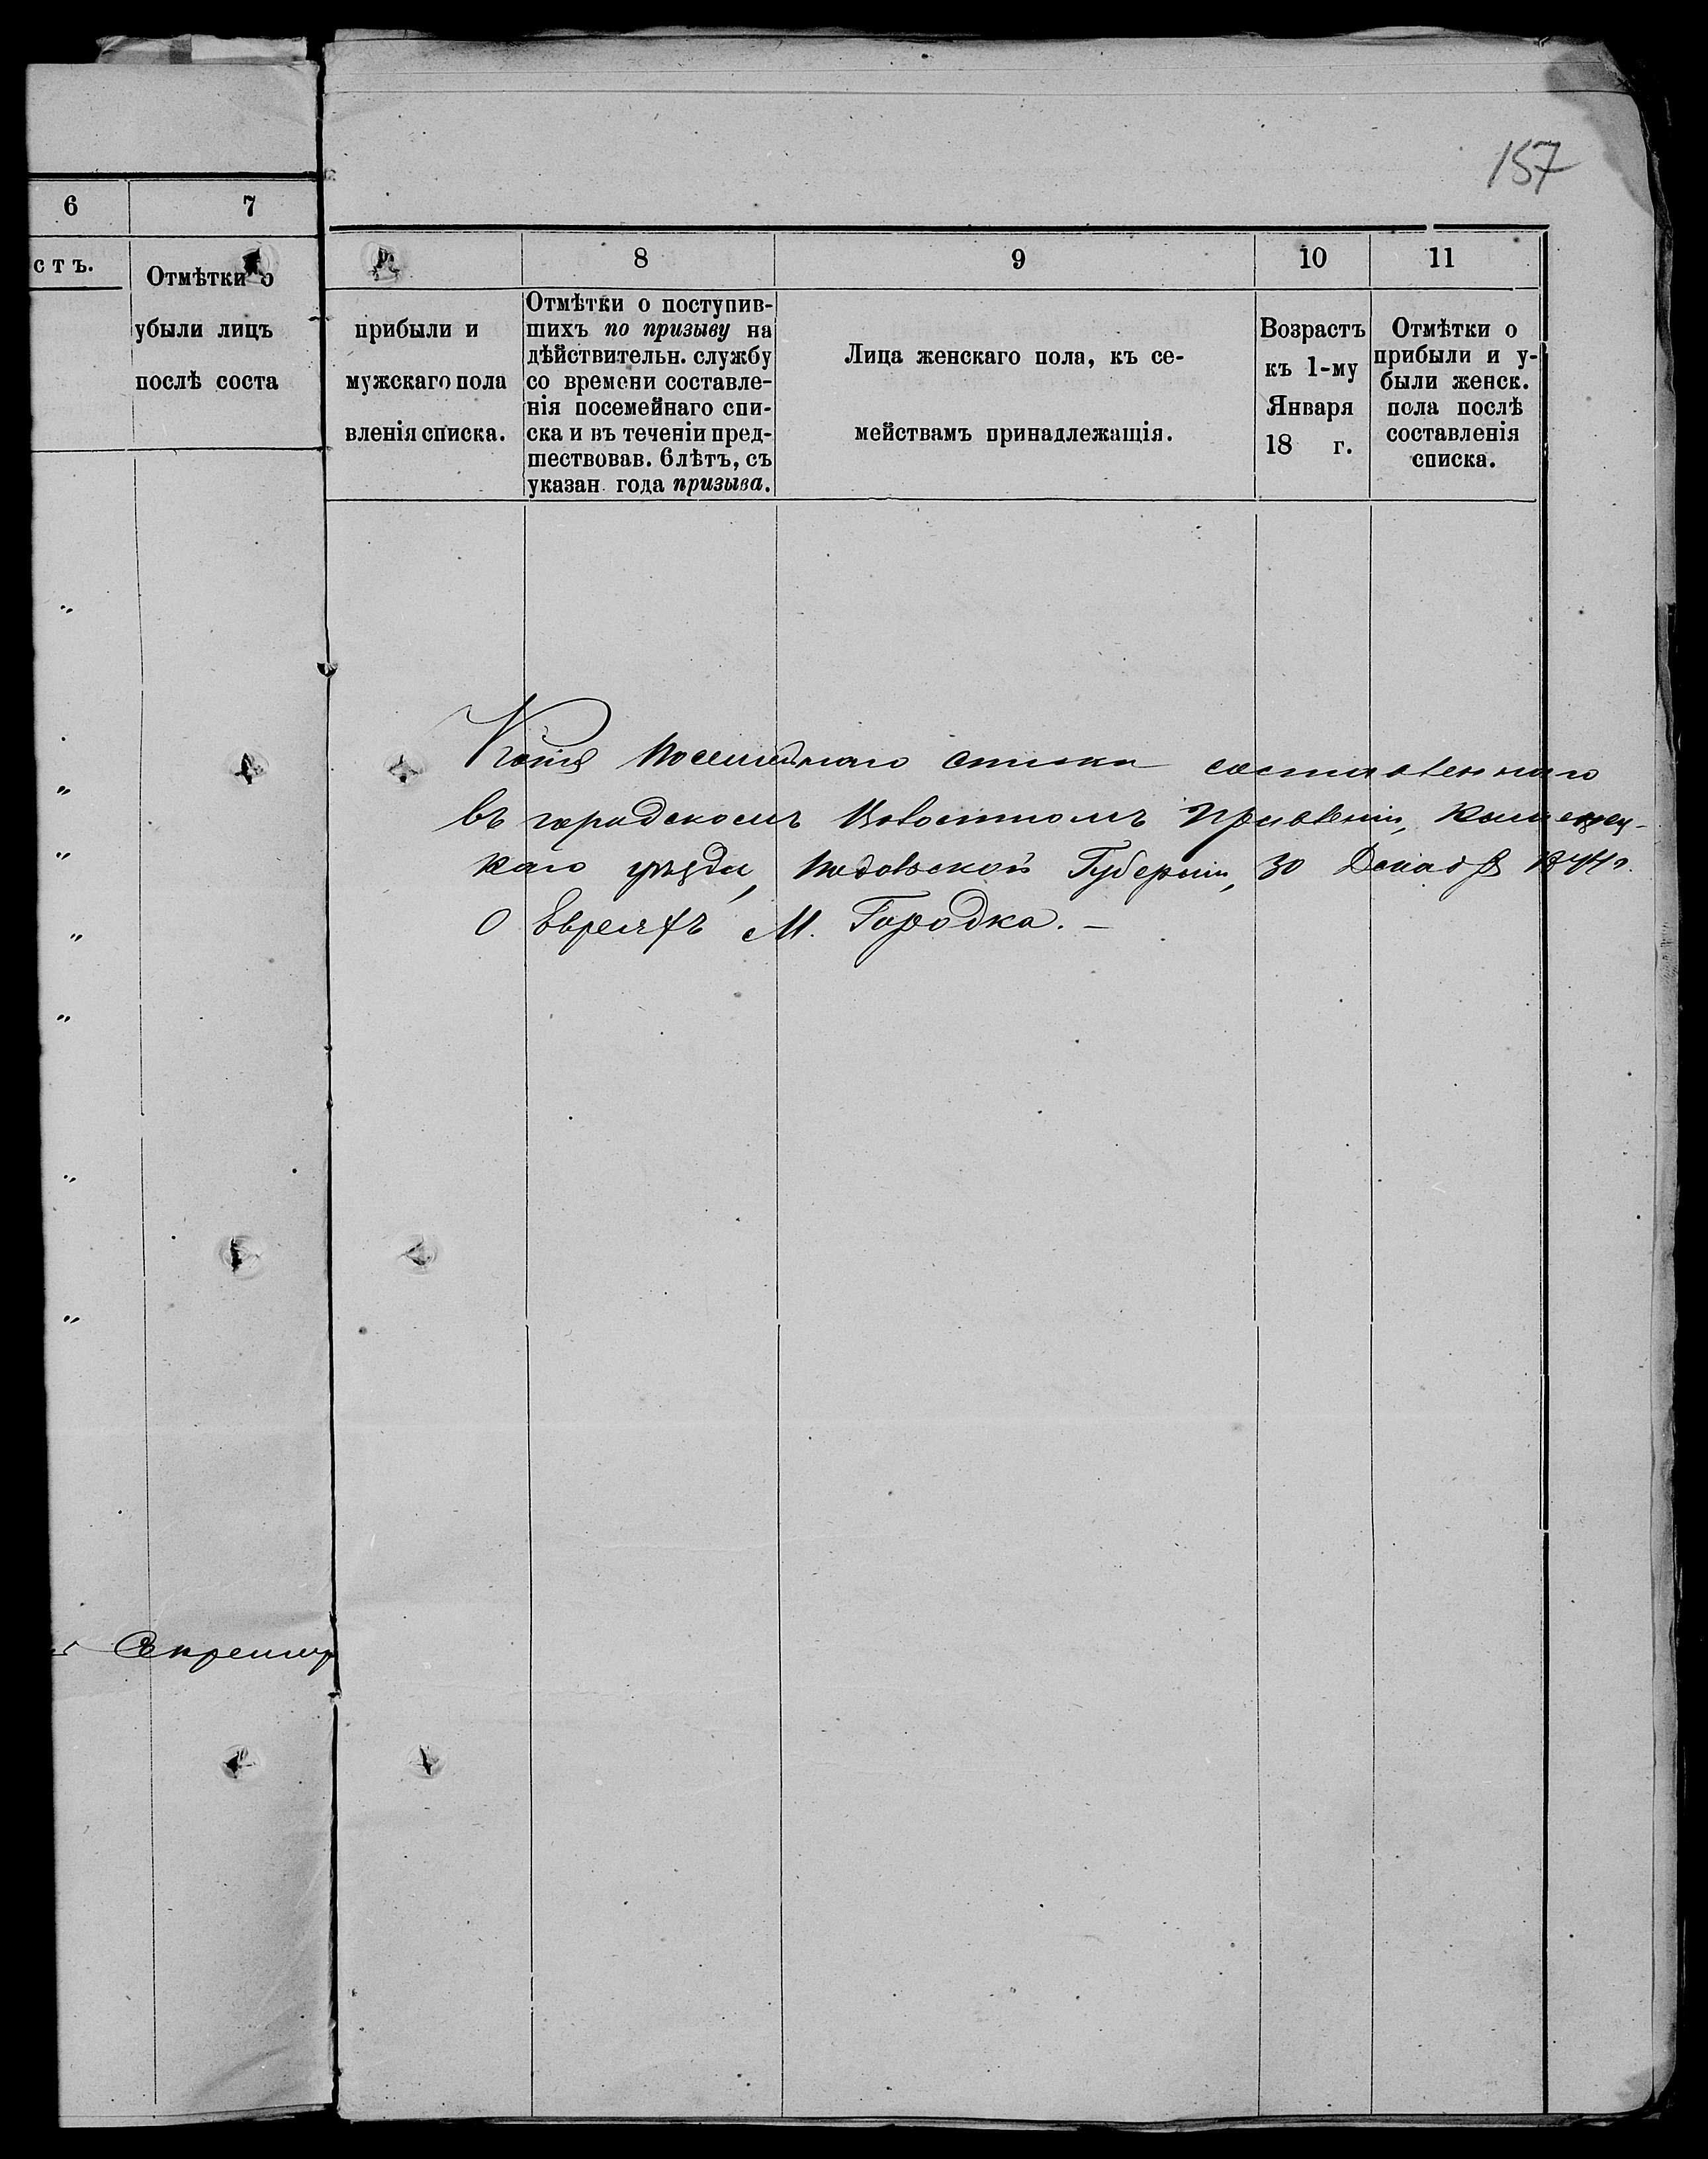 157
6 7
стъ. Отмѣтки о
убыли лицъ
послѣ соста
8 9 10 11
прибыли и
мужскаго пола
вленія списка.
Отмѣтки о поступив-
шихъ по призыву на
дѣйствительн. службу
со времени составле-
нія посемейнаго спи-
ска и въ теченіи пред-
шествовав. 6 лѣтъ, съ
указан. года призыва.
Лица женскаго пола, къ се-
мействамъ принадлежащія.
Возрастъ
къ 1-му
Января
18 г.
Отмѣтки о
прибыли и у-
были женск.
пола послѣ
составленія
списка.
Копія Посемейнаго списка составленнаго
въ городскомъ Волостномъ Правленіи, Каменец-
каго уѣзда, Подольской Губерніи, 30 Декабря 1874 г.
О Евреяхъ М. Городка. —
Секретар